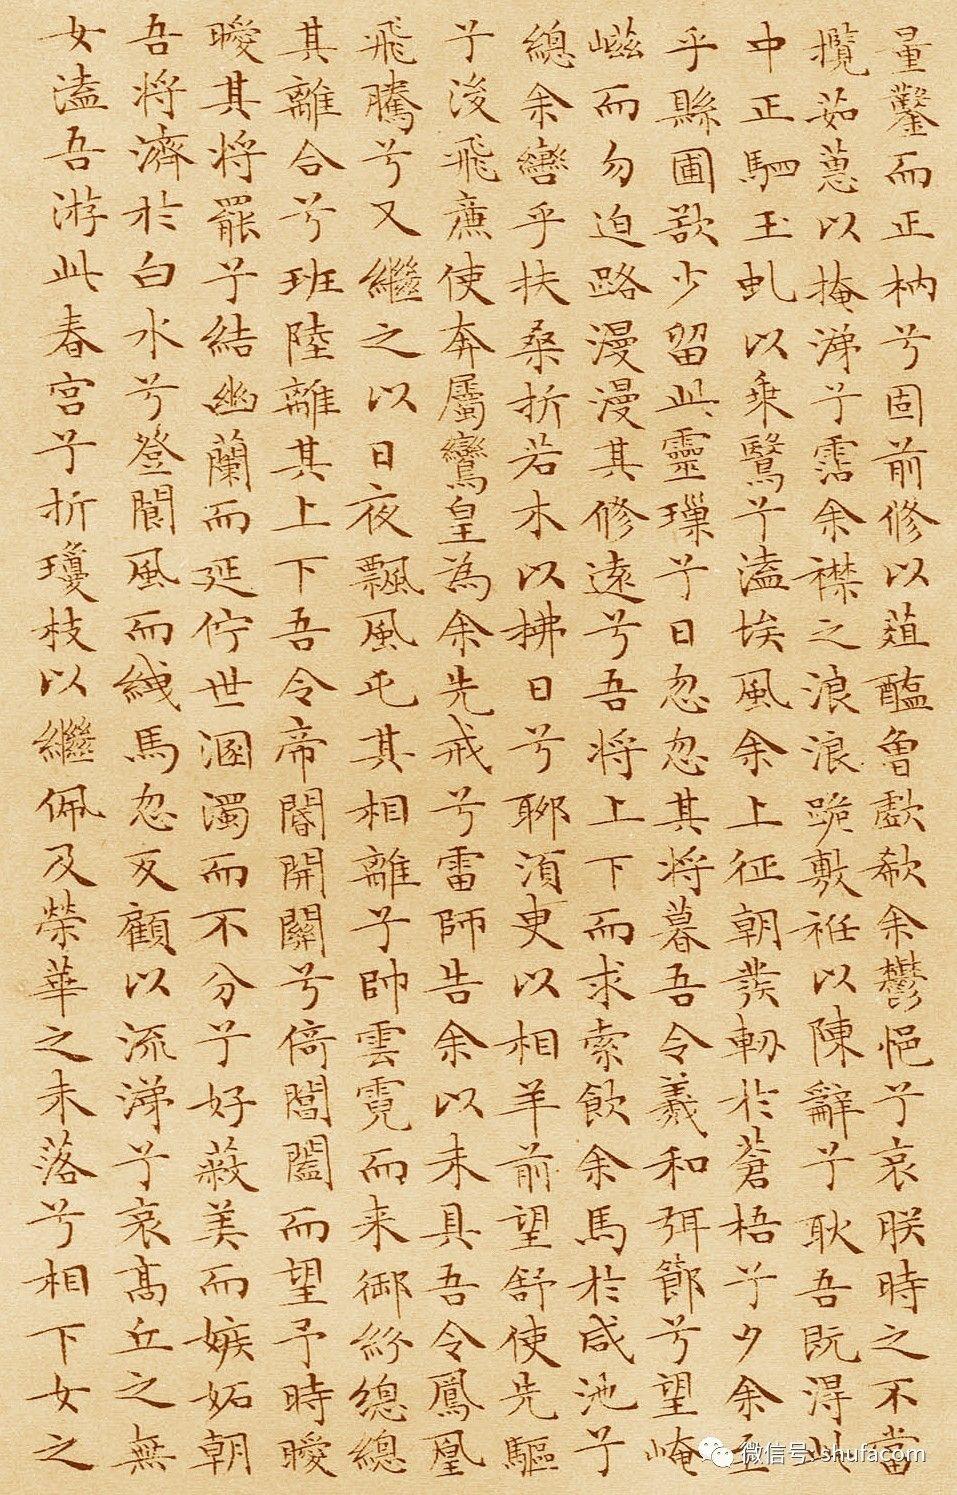 量鑿而正枘兮固前修以菹醢曾歔欷余鬱悒兮哀朕時之不當
攬茹蕙以掩涕兮霑余襟之浪浪跪敷衽以陳辭兮耿吾既得此
中正駟玉虬以乘鷖兮溘埃風余上征朝發軔於蒼梧兮夕余至
乎縣圃欲少留此靈璅兮日忽忽其将暮吾令羲和弭節兮望崦
嵫而勿迫路漫漫其修遠兮吾将上下而求索飲余馬於咸池兮
總余轡乎扶桑折若木以拂日兮聊須臾以相羊前望舒使先驅
兮後飛廉使奔屬鸞皇為余先戒兮雷師告余以未具吾令鳳凰
飛騰兮又繼之以日夜飄風屯其相離兮帥雲霓而来御紛總總
其離合兮班陸離其上下吾令帝閽開關兮倚閶闔而望予時曖
曖其将罷兮結幽蘭而延佇世溷濁而不分兮好蔽美而嫉妬朝
吾将濟於白水兮登閬風而緤馬忽反顧以流涕兮哀高丘之無
女溘吾游此春宮兮折瓊枝以繼佩及榮華之未落兮相下女之
微信号: shufacom